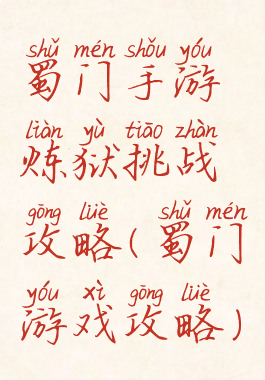 shǔ mén shǒu yóu
蜀门手游
liàn yù tiāo zhàn
炼狱挑战
gōng lüè ( shǔ mén
攻略(蜀门
yóu xì gōng lüè
游戏攻略)